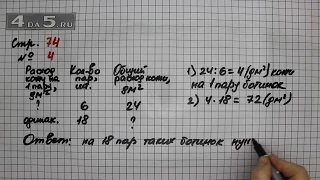 4da5.ru
Стр. 74
№ 4
Расход кожи на 1 пару, дм²
Кол-во пар, шт.
Общий расход кожи, дм²
? 6 24
одинак. 18 ?
1) 24:6=4(дм²) кожи
на 1 пару ботинок
2) 4·18=72(дм²)
Ответ: на 18 пар таких ботинок нуж